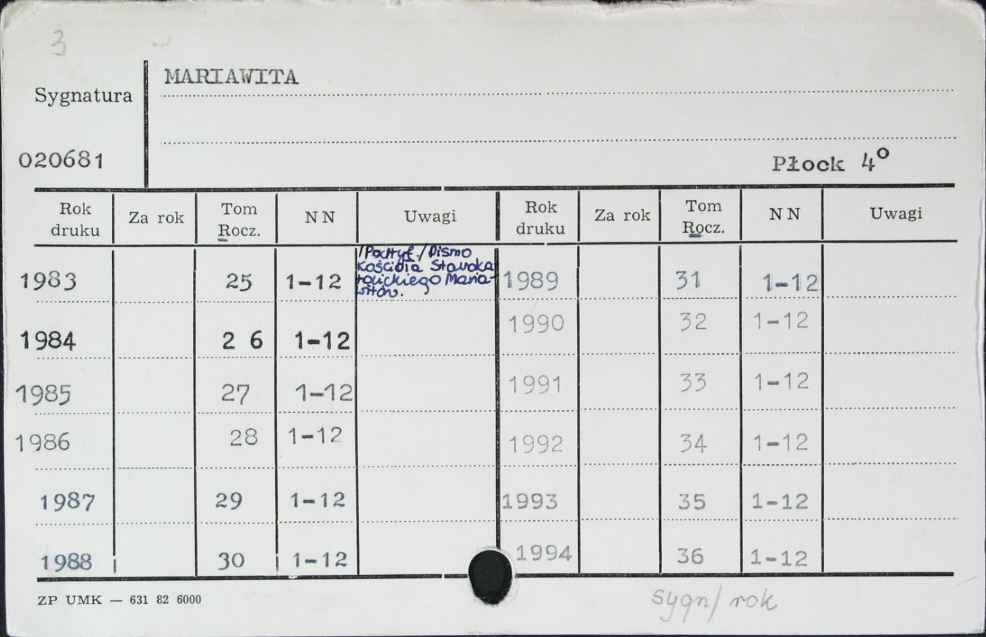 3
MARIAWITA
Sygnatura
020681
Płock 4°
Rok druku Za rok Tom Rocz. NN Uwagi Rok druku Za rok Tom Rocz. NN Uwagi
1983 25 1-12 /Podtyt./Pismo Kościoła Staroka- tolickiego Maria- witów. 1989 31 1-12
1984 2 6 1-12 1990 32 1-12
1985 27 1-12 1991 33 1-12
1986 28 1-12 1992 34 1-12
1987 29 1-12 1993 35 1-12
1988 30 1-12 1994 36 1-12
ZP UMK — 631 82 6000
sygn/ rok